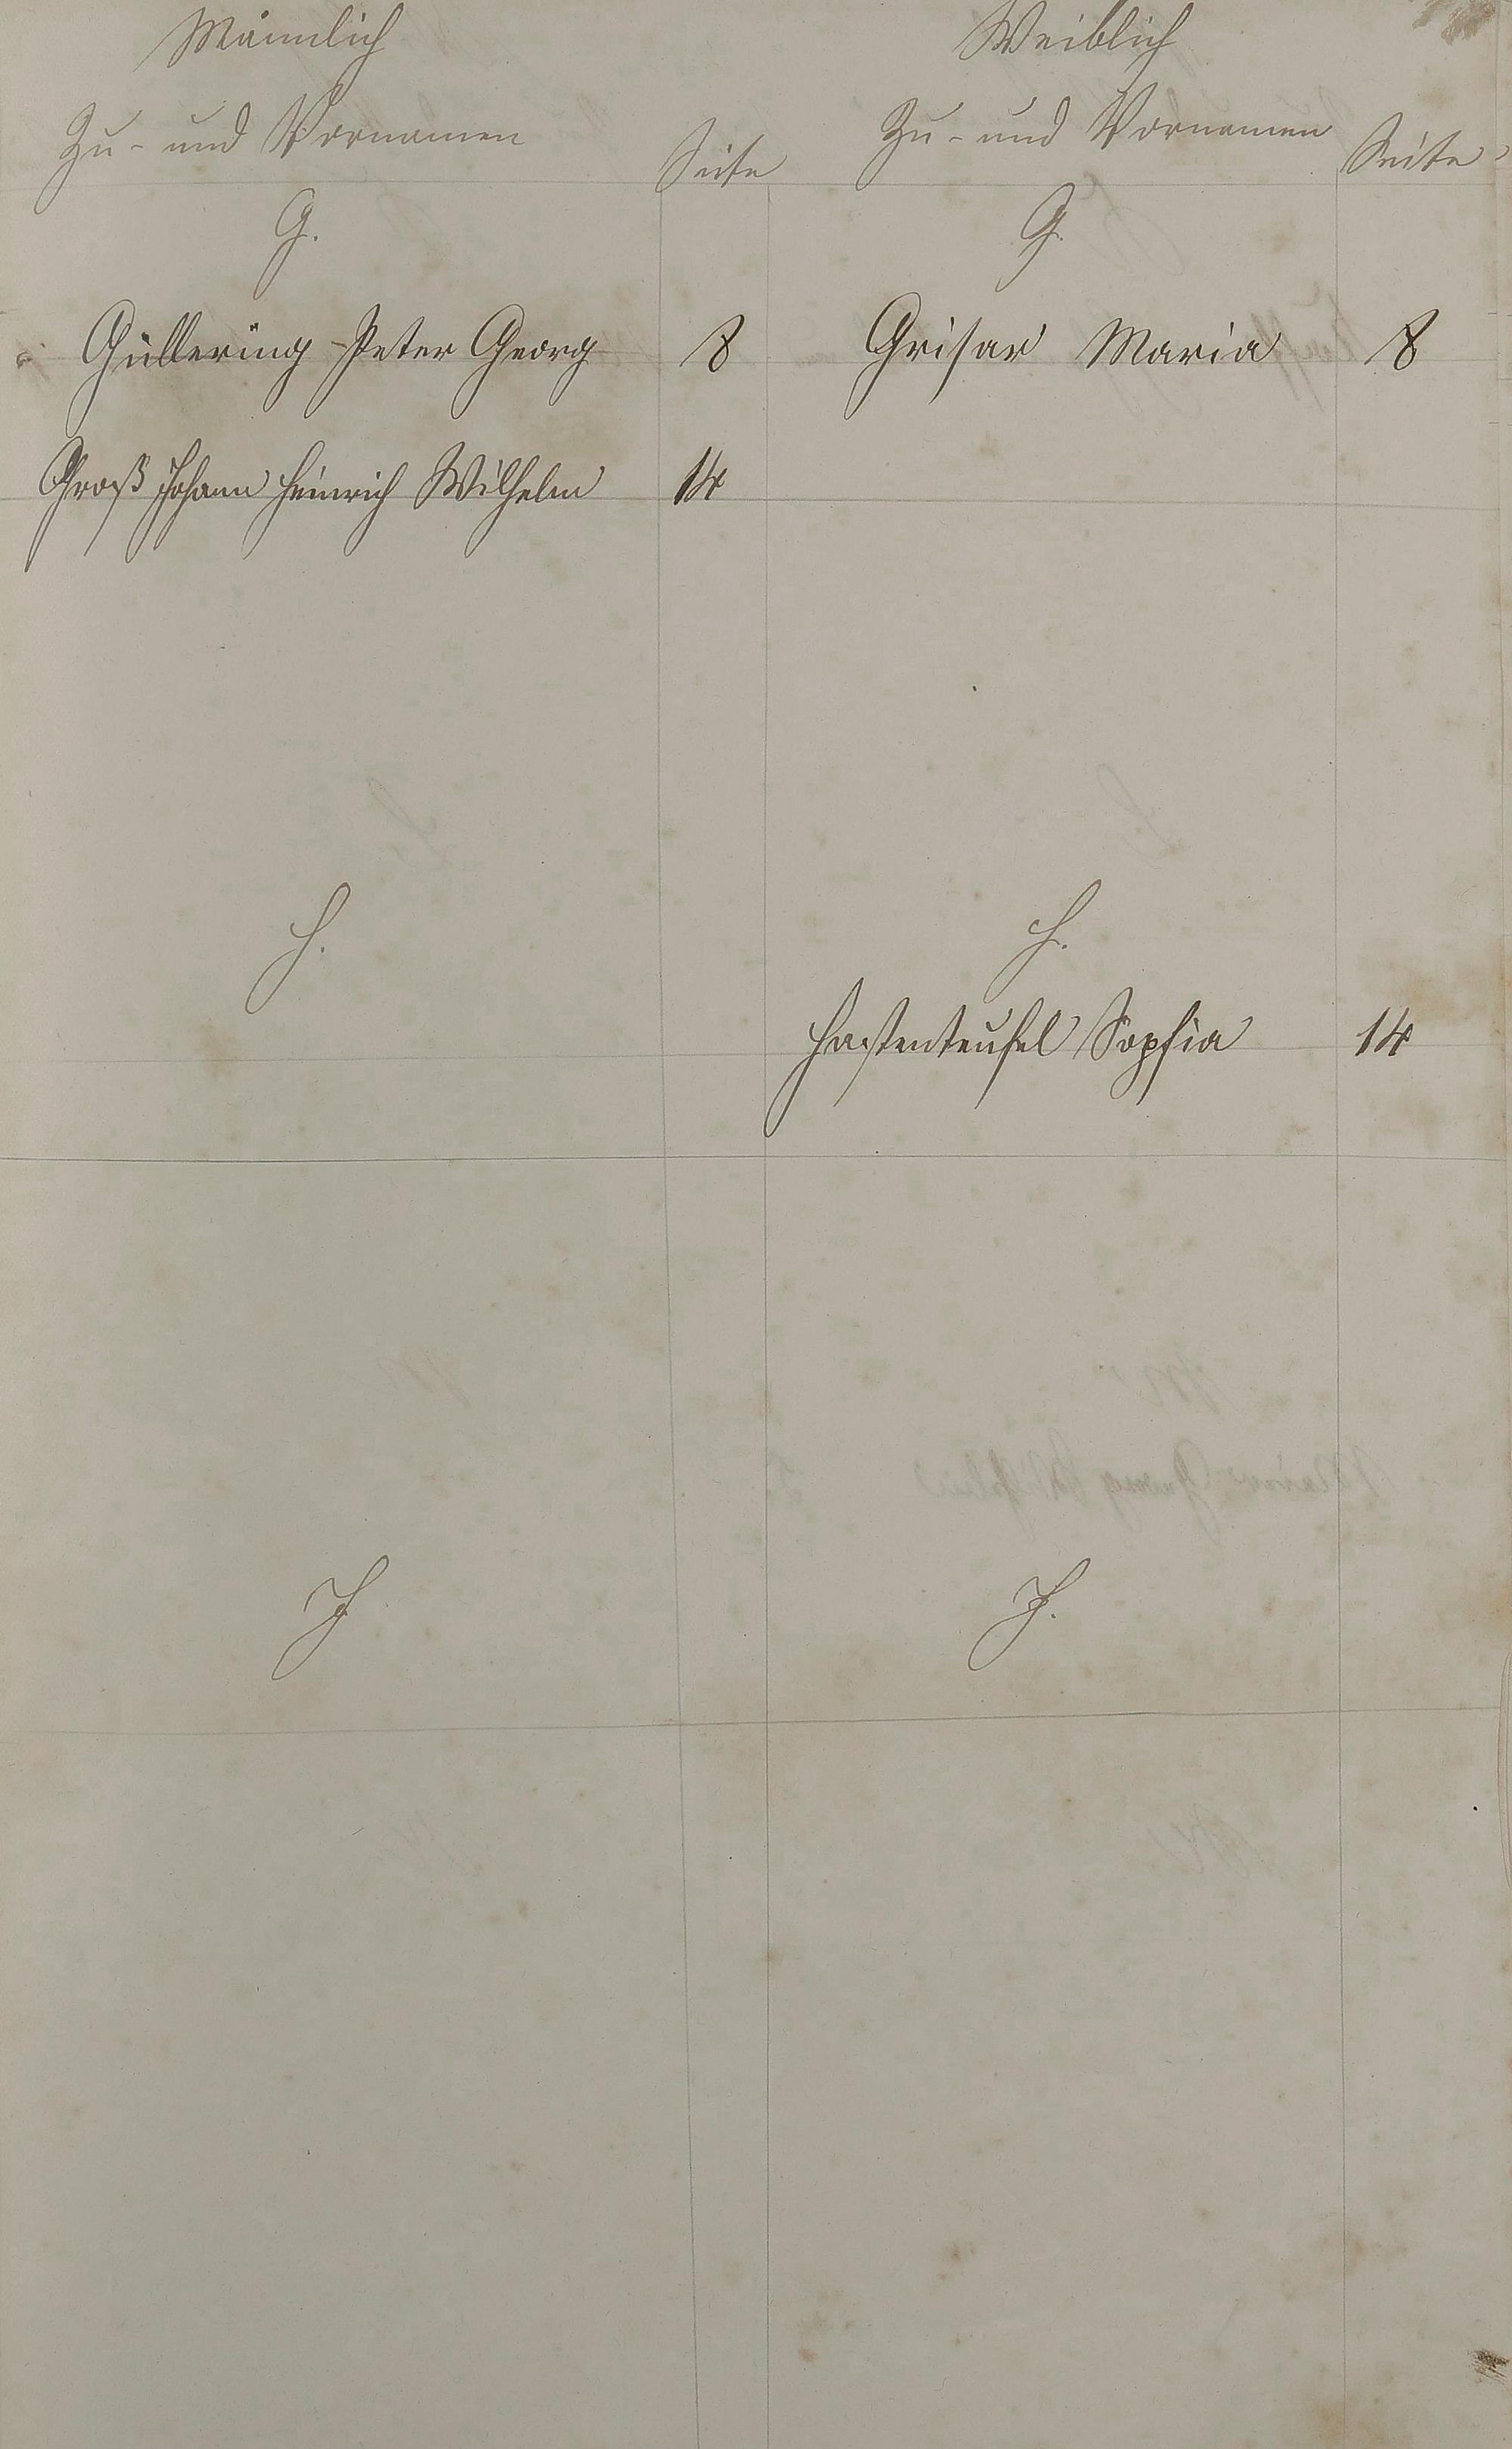 Männlich Weiblich
Zu- und Vornamen Seite Zu- und Vornamen Seite
G. G.
Güllering Peter Georg 8 Grisar Maria 8
Groß Johann Heinrich Wilhelm 14
H. H.
Hastenteufel Sophia 14
J J.